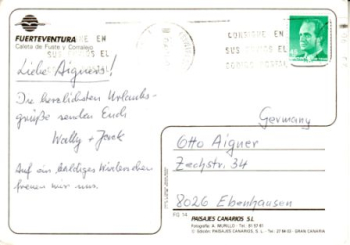 FUERTEVENTURA
Caleta de Fuste y Corralejo
Liebe Aigners!
Die herzlichsten Urlaubs-
grüße senden Euch
Wally + Jack
Auf ein baldiges Wiedersehen
freuen wir uns.
CONSIGNE EN
SUS ENVIOS EL
CODIGO POSTAL
Germany
Otto Aigner
Zechstr. 34
8026 Ebenhausen
FU 14
PAISAJES CANARIOS S.L.
Fotografía: A. MURILLO
Edición: PAISAJES CANARIOS, S. L.
GRAN CANARIA